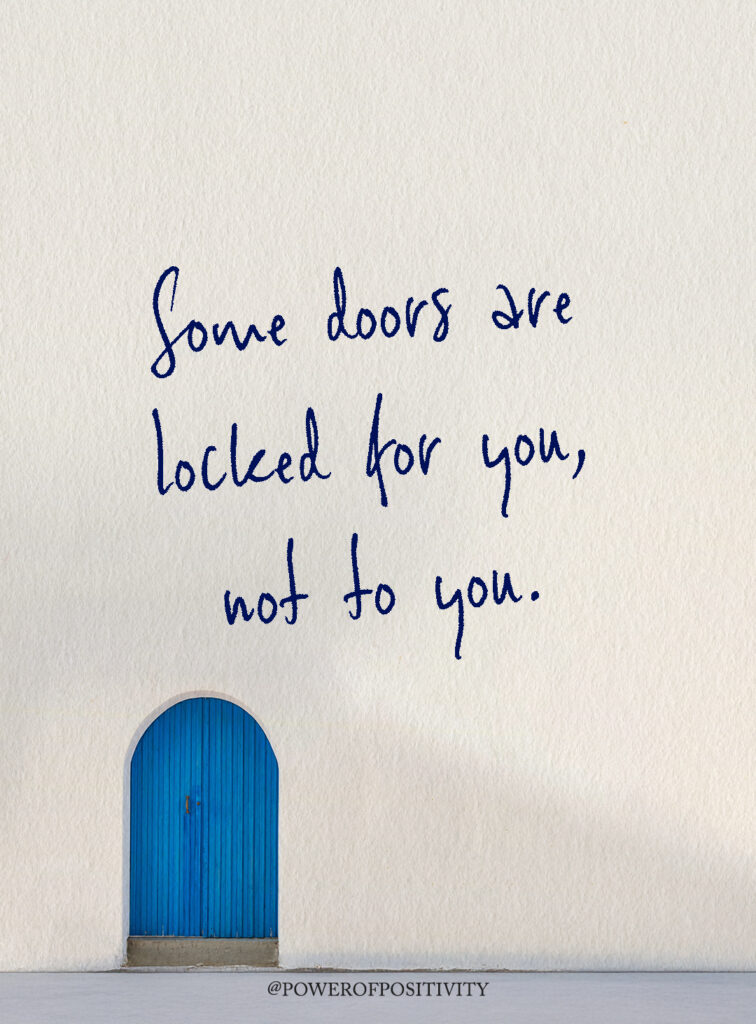 Some doors are
locked for you,
not to you.
@POWEROFPOSITIVITY